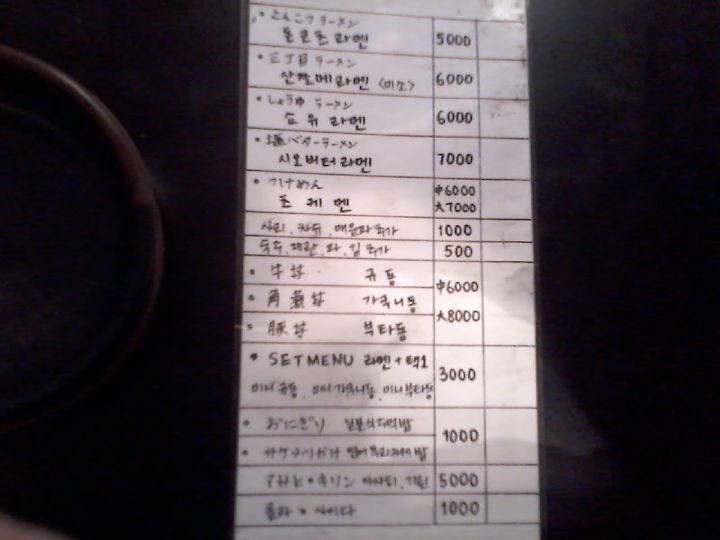 とんこつラーメン
돈코츠 라멘 5000
三丁目ラーメン
산쵸메라멘 <미소> 6000
しょうゆ ラーメン
쇼유 라멘 6000
塩バターラーメン
시오버터라멘 7000
つけめん 中6000
츠케멘 大7000
사리, 챠슈, 매운파추가 1000
숙주, 계란, 파, 김 추가 500
牛丼 규동
角煮丼 가쿠니동 中6000
大8000
豚丼 부타동
SET MENU 라멘 + 택1
미니규동, 미니가쿠니동, 미니부타동 3000
おにぎり 일본식주먹밥
1000
サケフリカケ 연어
アサヒ・キリン 아사히, 기린 5000
콜라 사이다 1000